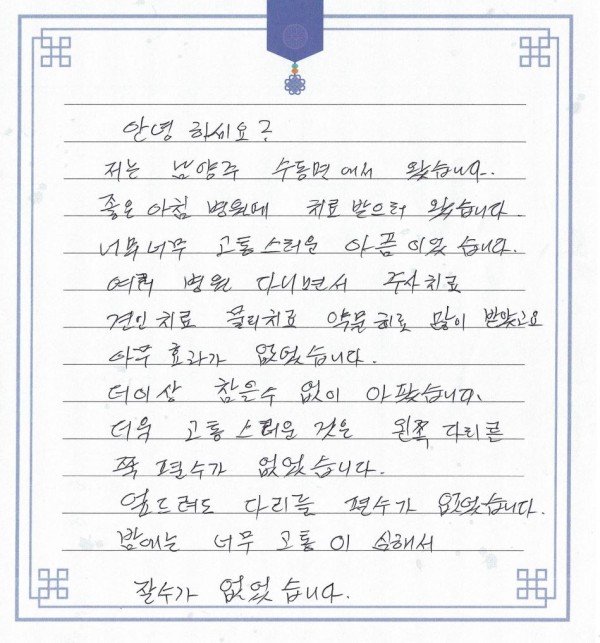 안녕 하세요?
저는 남양주 수동면에서 왔습니다.
좋은 아침 병원에 치료 받으러 왔습니다.
너무너무 고통스러운 아픔이었습니다.
여러 병원 다니면서 주사치료
견인치료 물리치료 약물치료 많이 받았고요
아무 효과가 없었습니다.
더이상 참을수 없이 아팠습니다.
더욱 고통스러운 것은 왼쪽 다리를
쭉 펼수가 없었습니다.
엎드려도 다리를 펼수가 없었습니다.
밤에는 너무 고통이 심해서
잘수가 없었습니다.